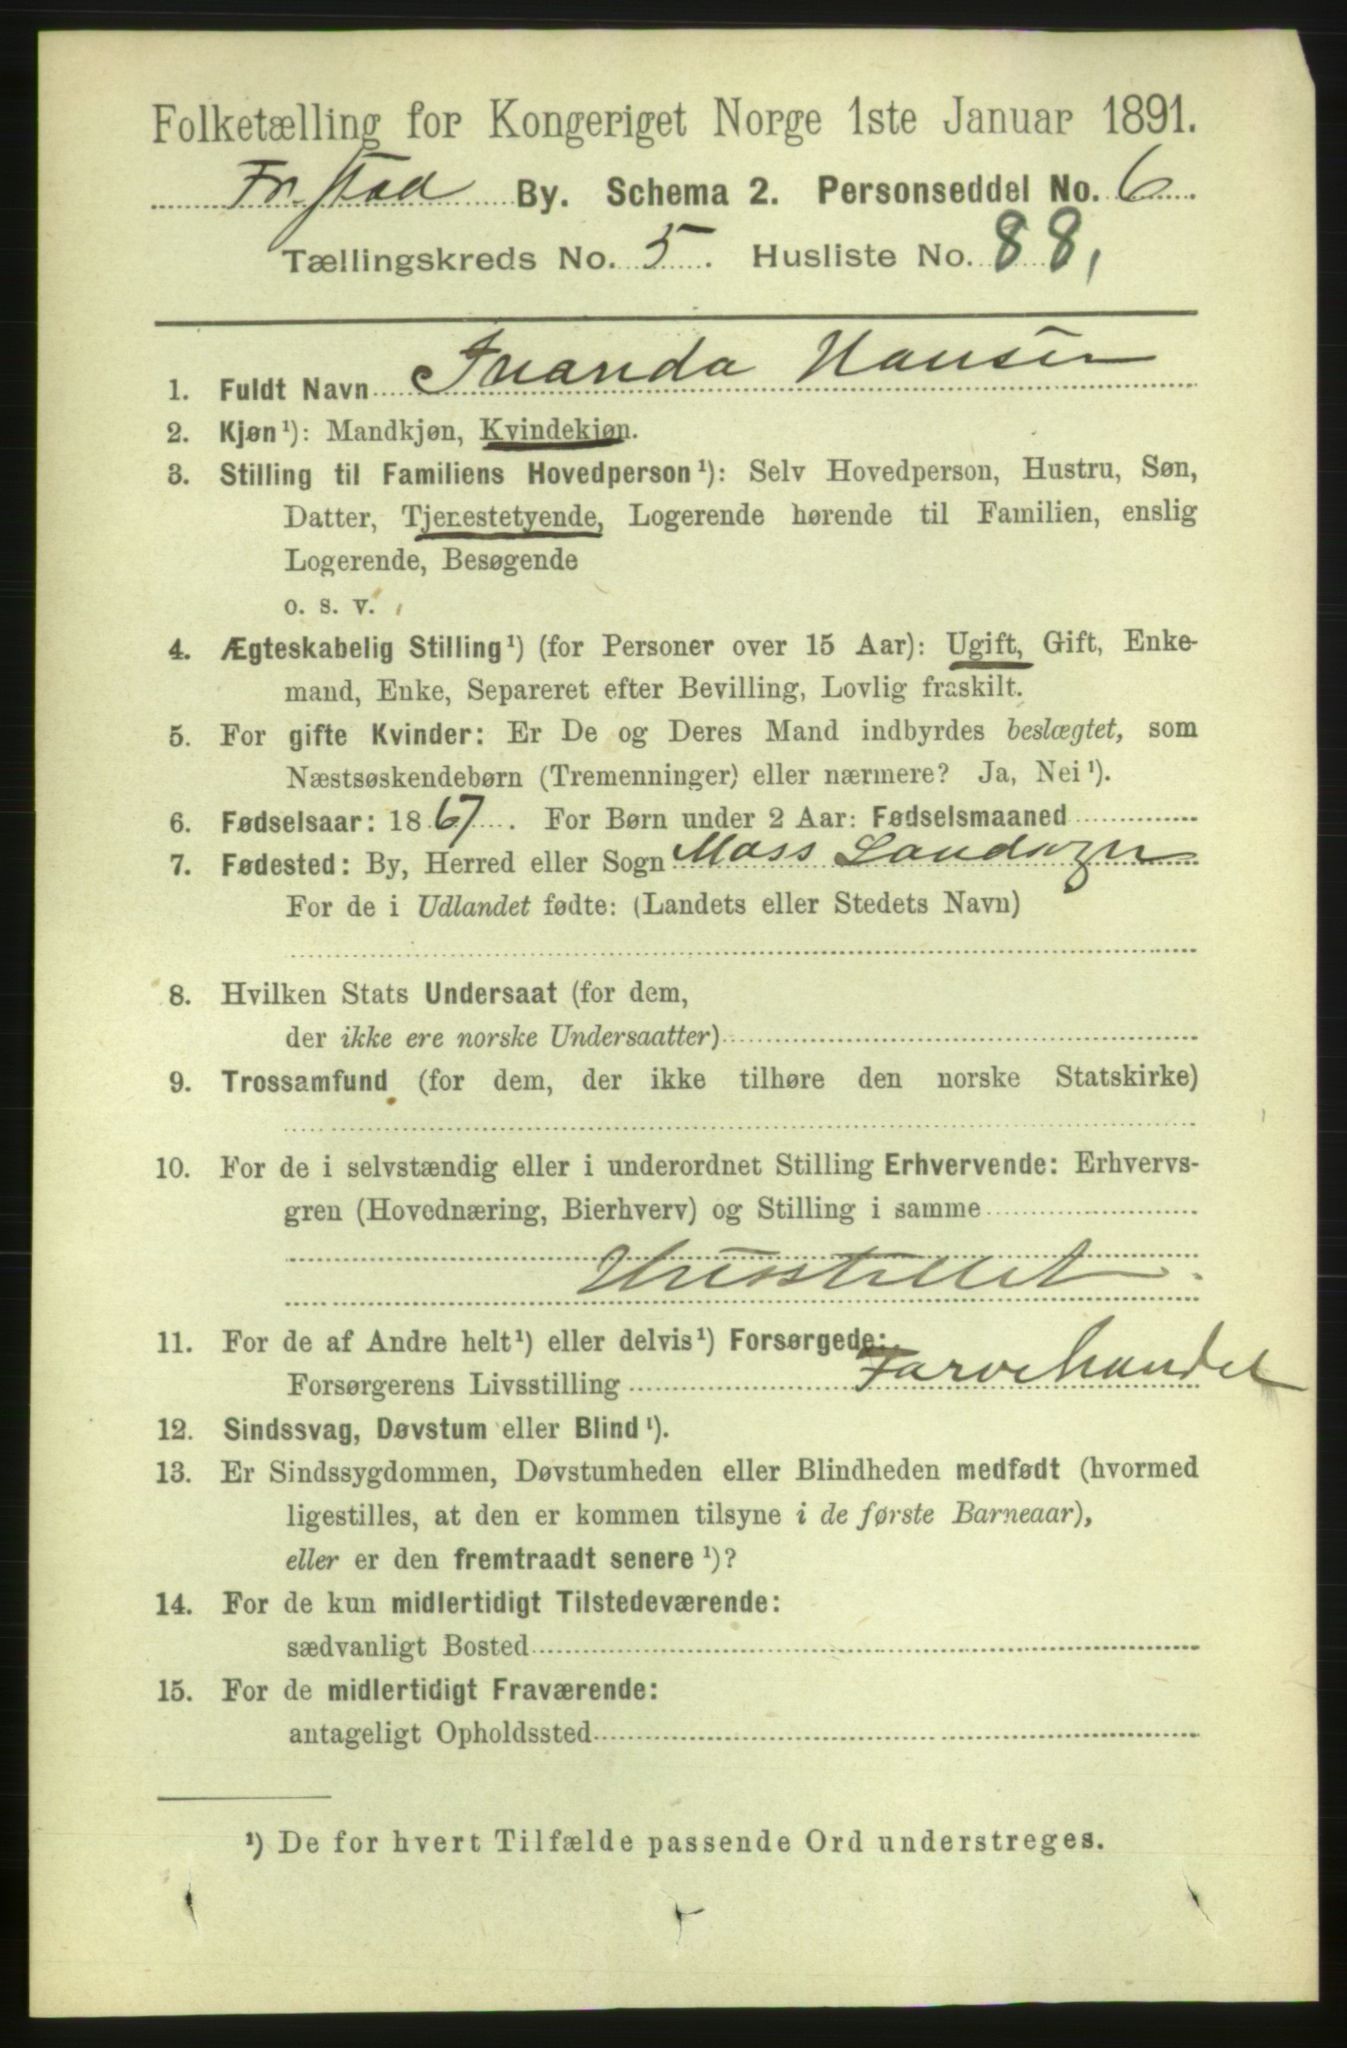 Folketælling for Kongeriget Norge 1ste Januar 1891.
Fr.stad By. Schema 2. Personseddel No. 6
Tællingskreds No. 5. Husliste No. 88,
1. Fuldt Navn Inanda Hansen
2. Kjøn¹): Mandkjøn, Kvindekjøn.
3. Stilling til Familiens Hovedperson¹): Selv Hovedperson, Hustru, Søn,
Datter, Tjenestetyende, Logerende hørende til Familien, enslig
Logerende, Besøgende
o. s. v.
4. Ægteskabelig Stilling¹) (for Personer over 15 Aar): Ugift, Gift, Enke-
mand, Enke, Separeret efter Bevilling, Lovlig fraskilt.
5. For gifte Kvinder: Er De og Deres Mand indbyrdes beslægtet, som
Næstsøskendebørn (Tremenninger) eller nærmere? Ja, Nei¹).
6. Fødselsaar: 1867. For Børn under 2 Aar: Fødselsmaaned
7. Fødested: By, Herred eller Sogn Moss Landsogn
For de i Udlandet fødte: (Landets eller Stedets Navn)
8. Hvilken Stats Undersaat (for dem,
der ikke ere norske Undersaatter)
9. Trossamfund (for dem, der ikke tilhøre den norske Statskirke)
10. For de i selvstændig eller i underordnet Stilling Erhvervende: Erhvervs-
gren (Hovednæring, Bierhverv) og Stilling i samme
Husstellet.
11. For de af Andre helt¹) eller delvis¹) Forsørgede:
Forsørgerens Livsstilling Farvehandel
12. Sindssvag, Døvstum eller Blind¹).
13. Er Sindssygdommen, Døvstumheden eller Blindheden medfødt (hvormed
ligestilles, at den er kommen tilsyne i de første Barneaar),
eller er den fremtraadt senere¹)?
14. For de kun midlertidigt Tilstedeværende:
sædvanligt Bosted
15. For de midlertidigt Fraværende:
antageligt Opholdssted
¹) De for hvert Tilfælde passende Ord understreges.